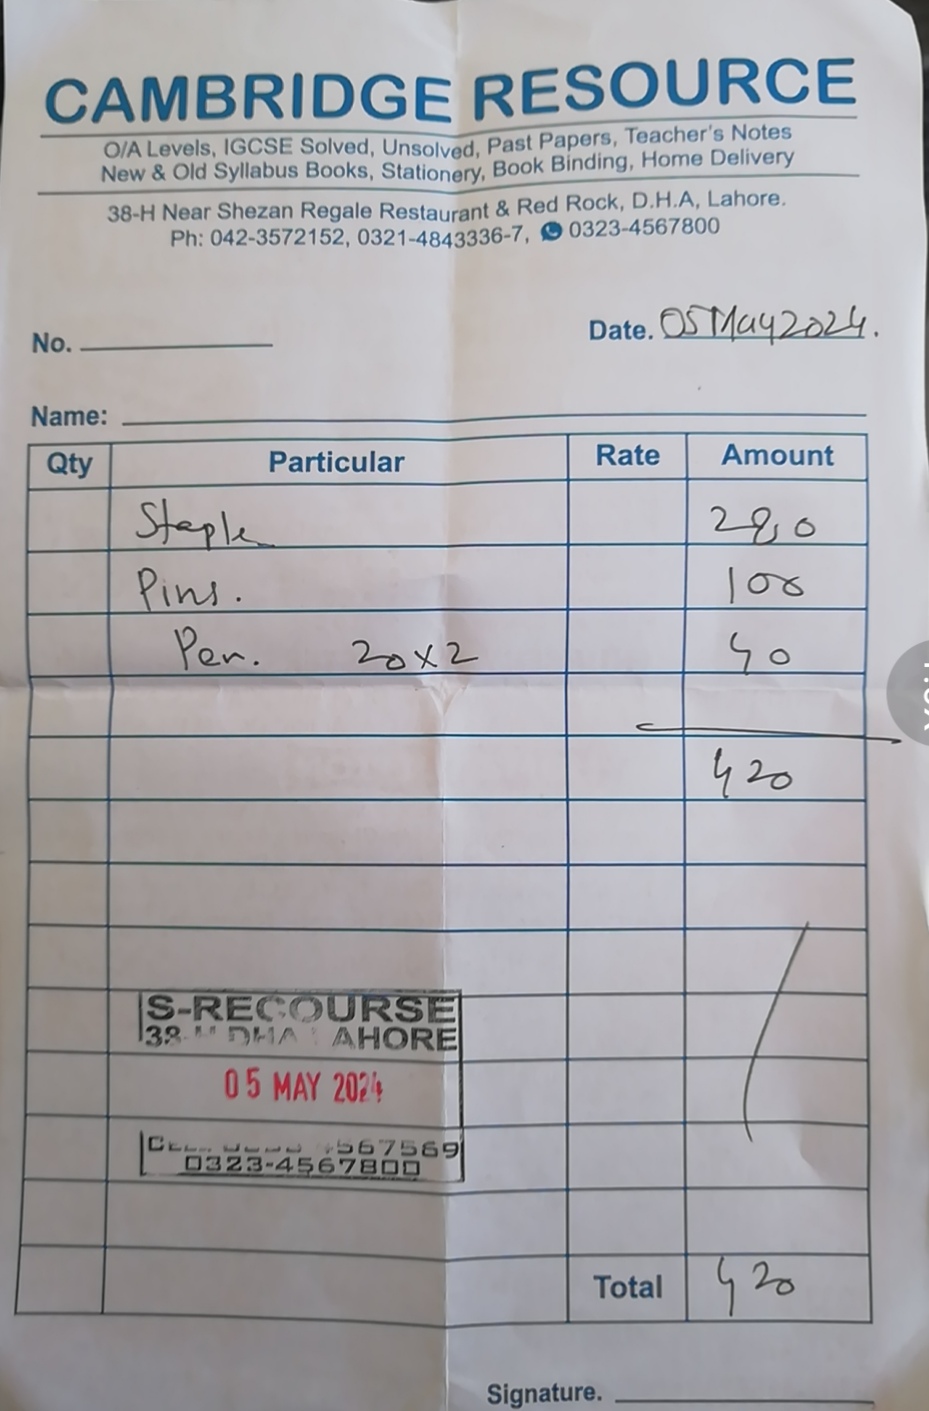 CAMBRIDGE RESOURCE
O/A Levels, IGCSE Solved, Unsolved, Past Papers, Teacher's Notes
New & Old Syllabus Books, Stationery, Book Binding, Home Delivery
38-H Near Shezan Regale Restaurant & Red Rock, D.H.A, Lahore.
Ph: 042-3572152, 0321-4843336-7, 0323-4567800
No. Date. 05 May 2024.
Name:
Qty Particular Rate Amount
Staple 280
Pins. 100
Pen. 20x2 40
420
S-RECOURSE
38-H DHA LAHORE
05 MAY 2024
567569
0323-4567800
Total 420
Signature.